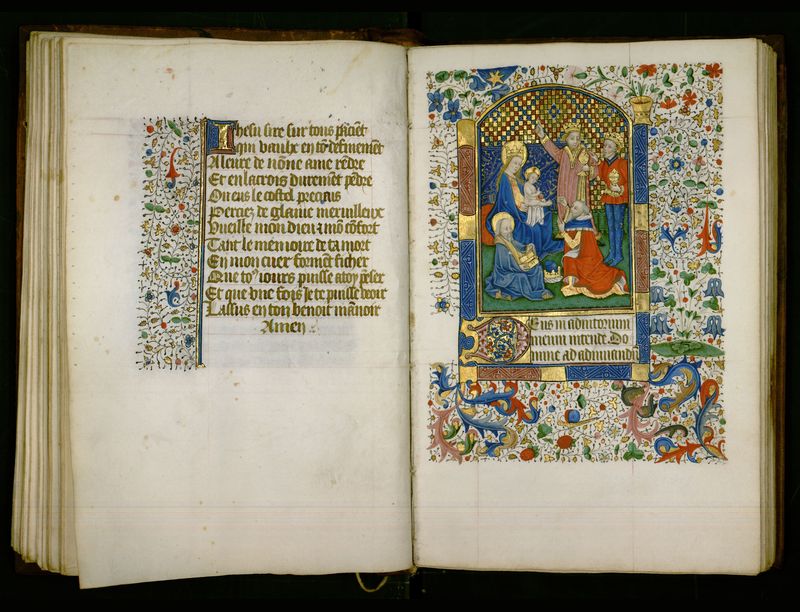 Ihesu sire sur tous puiãt
Qui vaulx en tõ definemẽt
A leure de nõne ame rẽdre
Et en la crois duremẽt pẽdre
Ou eus le costel precieus
Perciez de glaiue merueilleux
Vueille mon dieu & mõ cõfort
Tant le memoire de ta mort
En mon cuer formẽt ficher
Que toꝰ iours puisse a toy pẽser
Et que vne fois ie te puisse veoir
Lassus en ton benoit manoir
Amen
Deus in adiutorium
meum intende. Do
mine ad adiuuand